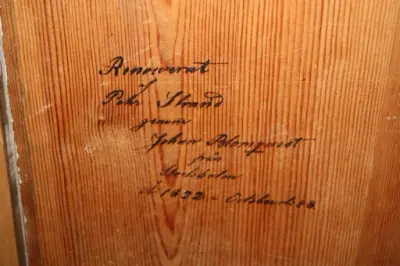 Renoverat
af
Pehr Strand
genom
Johan Blomquist
från
Stockholm
År 1822 - October